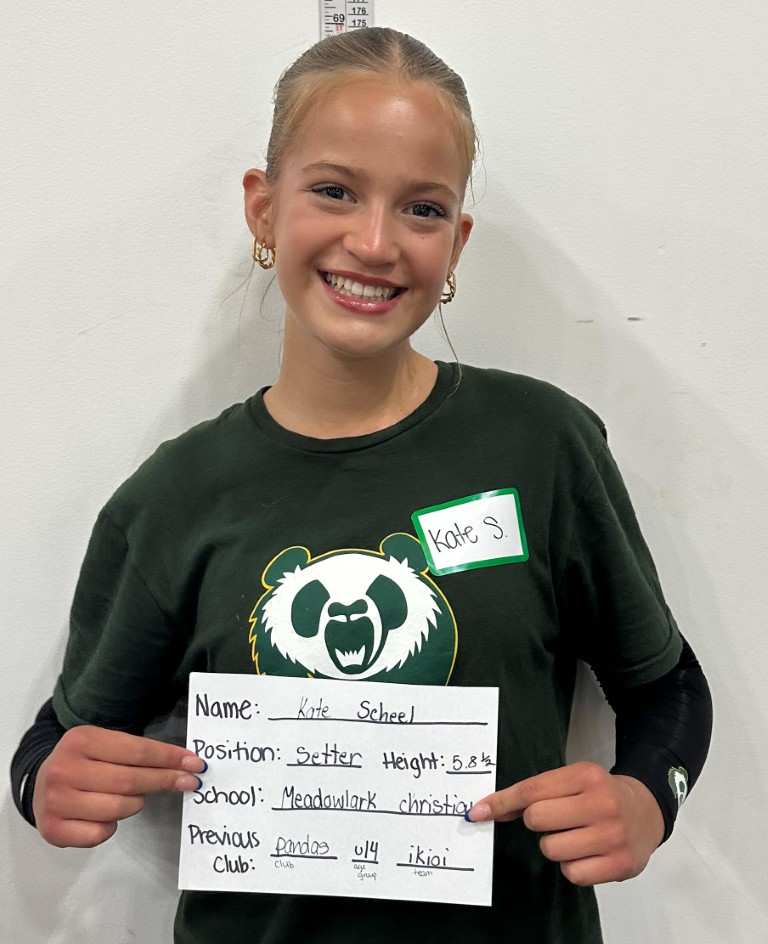 69
176
175
Kate S.
Name: Kate Scheel
Position: Setter Height: 5.8 ½
School: Meadowlark christian
Previous Club: pandas u14 ikioi
club age group team